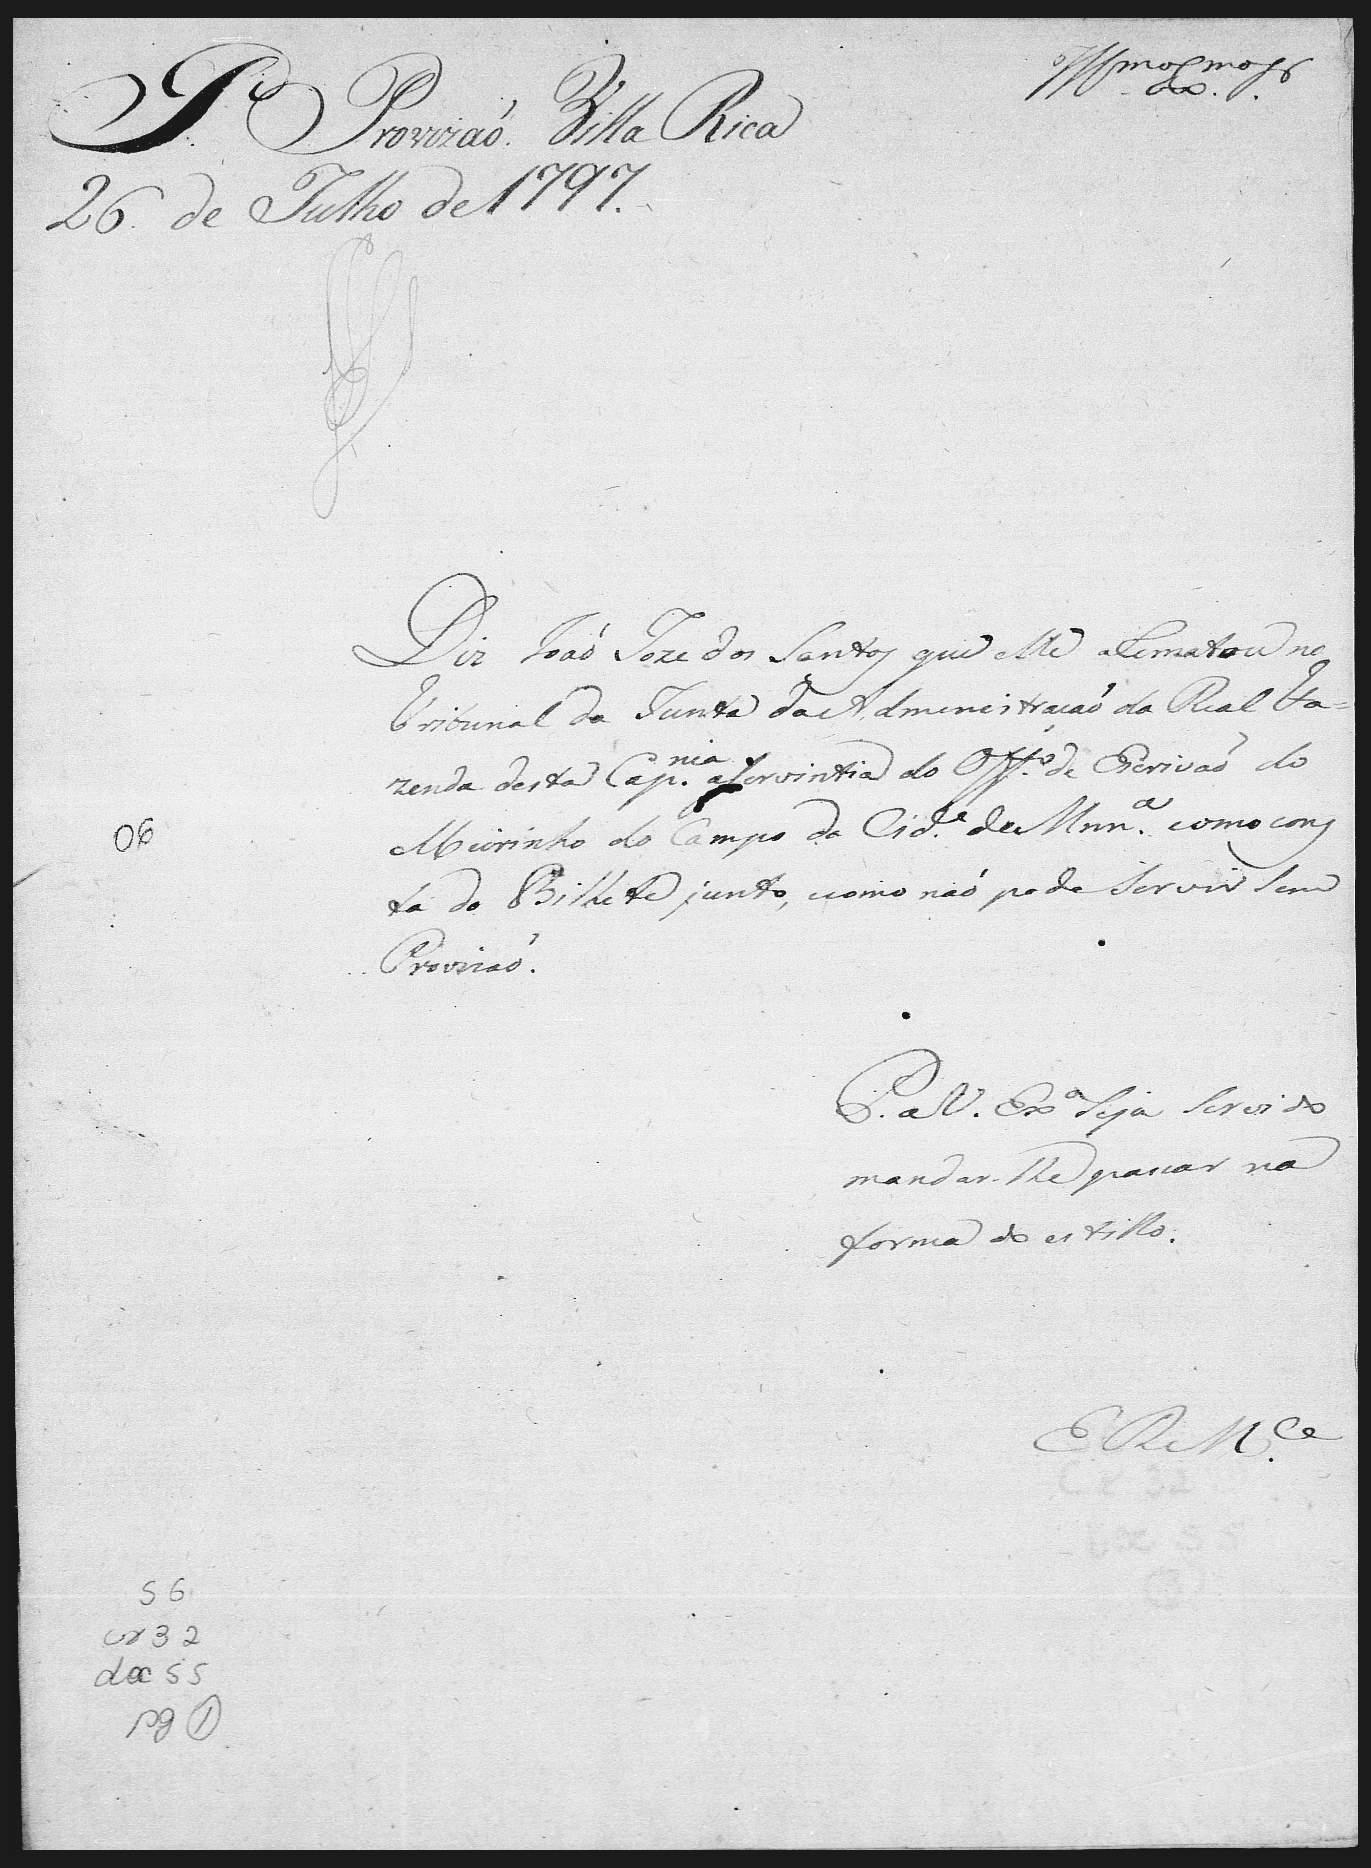 P. Provizaó. Villa Rica
26. de Julho de 1797.
Illmo e Exmo Sr.
Diz Joaó Joze dos Santos que elle arematou no
Tribunal da Junta da Admenistraçaó da Real Fa=
zenda desta Cap.nia a Serventia do Off.o de Escrivaó do
Meirinho do Campo da Cid.e de Mnn.a como cons
ta do Bilhete junto, e como naó pode Servir Sem
Provizaó.
06
P. a V. Exa Seja Servido
mandar-lhe passar na
forma do estillo.
E R M.ce
56
cx 32
doc 55
pg 1